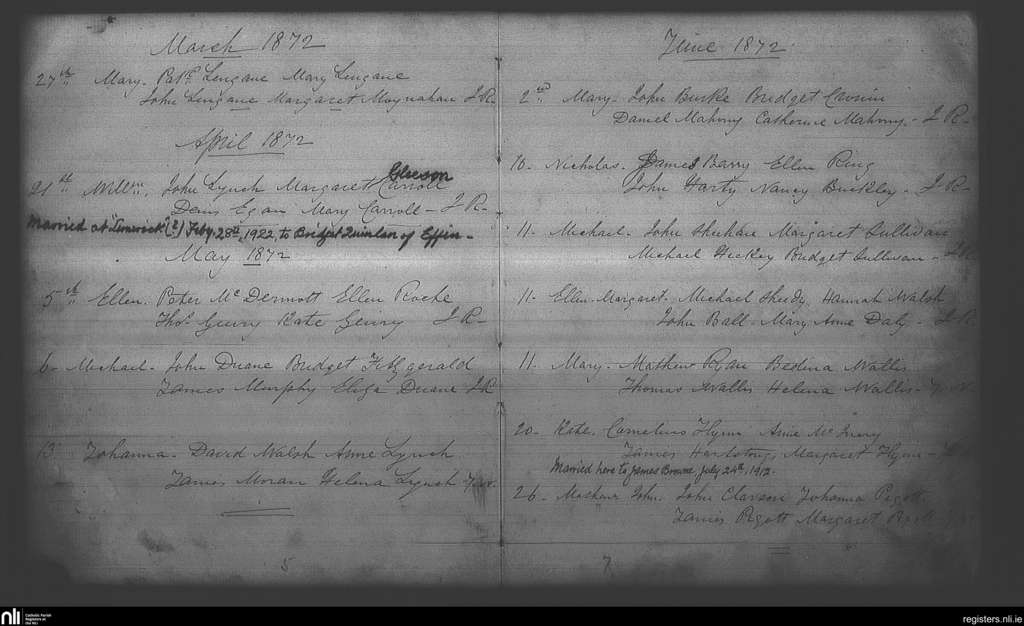 March 1872
27th Mary. Patk Lengane Mary Lengane
John Lengane Margaret Moynahan J R.
April 1872
21st Willm. John Lynch Margaret Carroll Gleeson
Denis Egan Mary Carroll - J R-
Married at "Limerick" (?) Feby. 28th, 1922, to Bridget Quinlan of Effin -
May 1872
5th Ellen. Peter McDermott Ellen Roche
Thos Geiry Kate Geiry J R-
6 - Michael. John Duane Bridget Fitzgerald
James Murphy Eliza Duane J R
13 Johanna - David Walsh Anne Lynch
James Moran Helena Lynch
5
June 1872
2nd Mary. John Burke Bridget Cronin
Daniel Mahony Catherine Mahony - J R-
10. Nicholas. James Barry Ellen Ring
John Harty Nancy Buckley - J R-
11. Michael. John Sheehan Margaret Sullivan
Michael Hickey Bridget Sullivan - J R
11- Ellen Margaret. Michael Sheedy, Hannah Walsh
John Ball - Mary Anne Daly - J R.
11. Mary. Mathew Ryan Bedina Wallis
Thomas Wallis Helena Wallis -
20 - Kate. Cornelius Flynn Anne
James Margaret Flynn -
Married here to James Browne, July 24th, 1912.
26 - Mathew John. John Clawson Johanna Pigott
James Pigott Margaret Pigott
7
nli Catholic Parish Registers at the NLI
registers.nli.ie